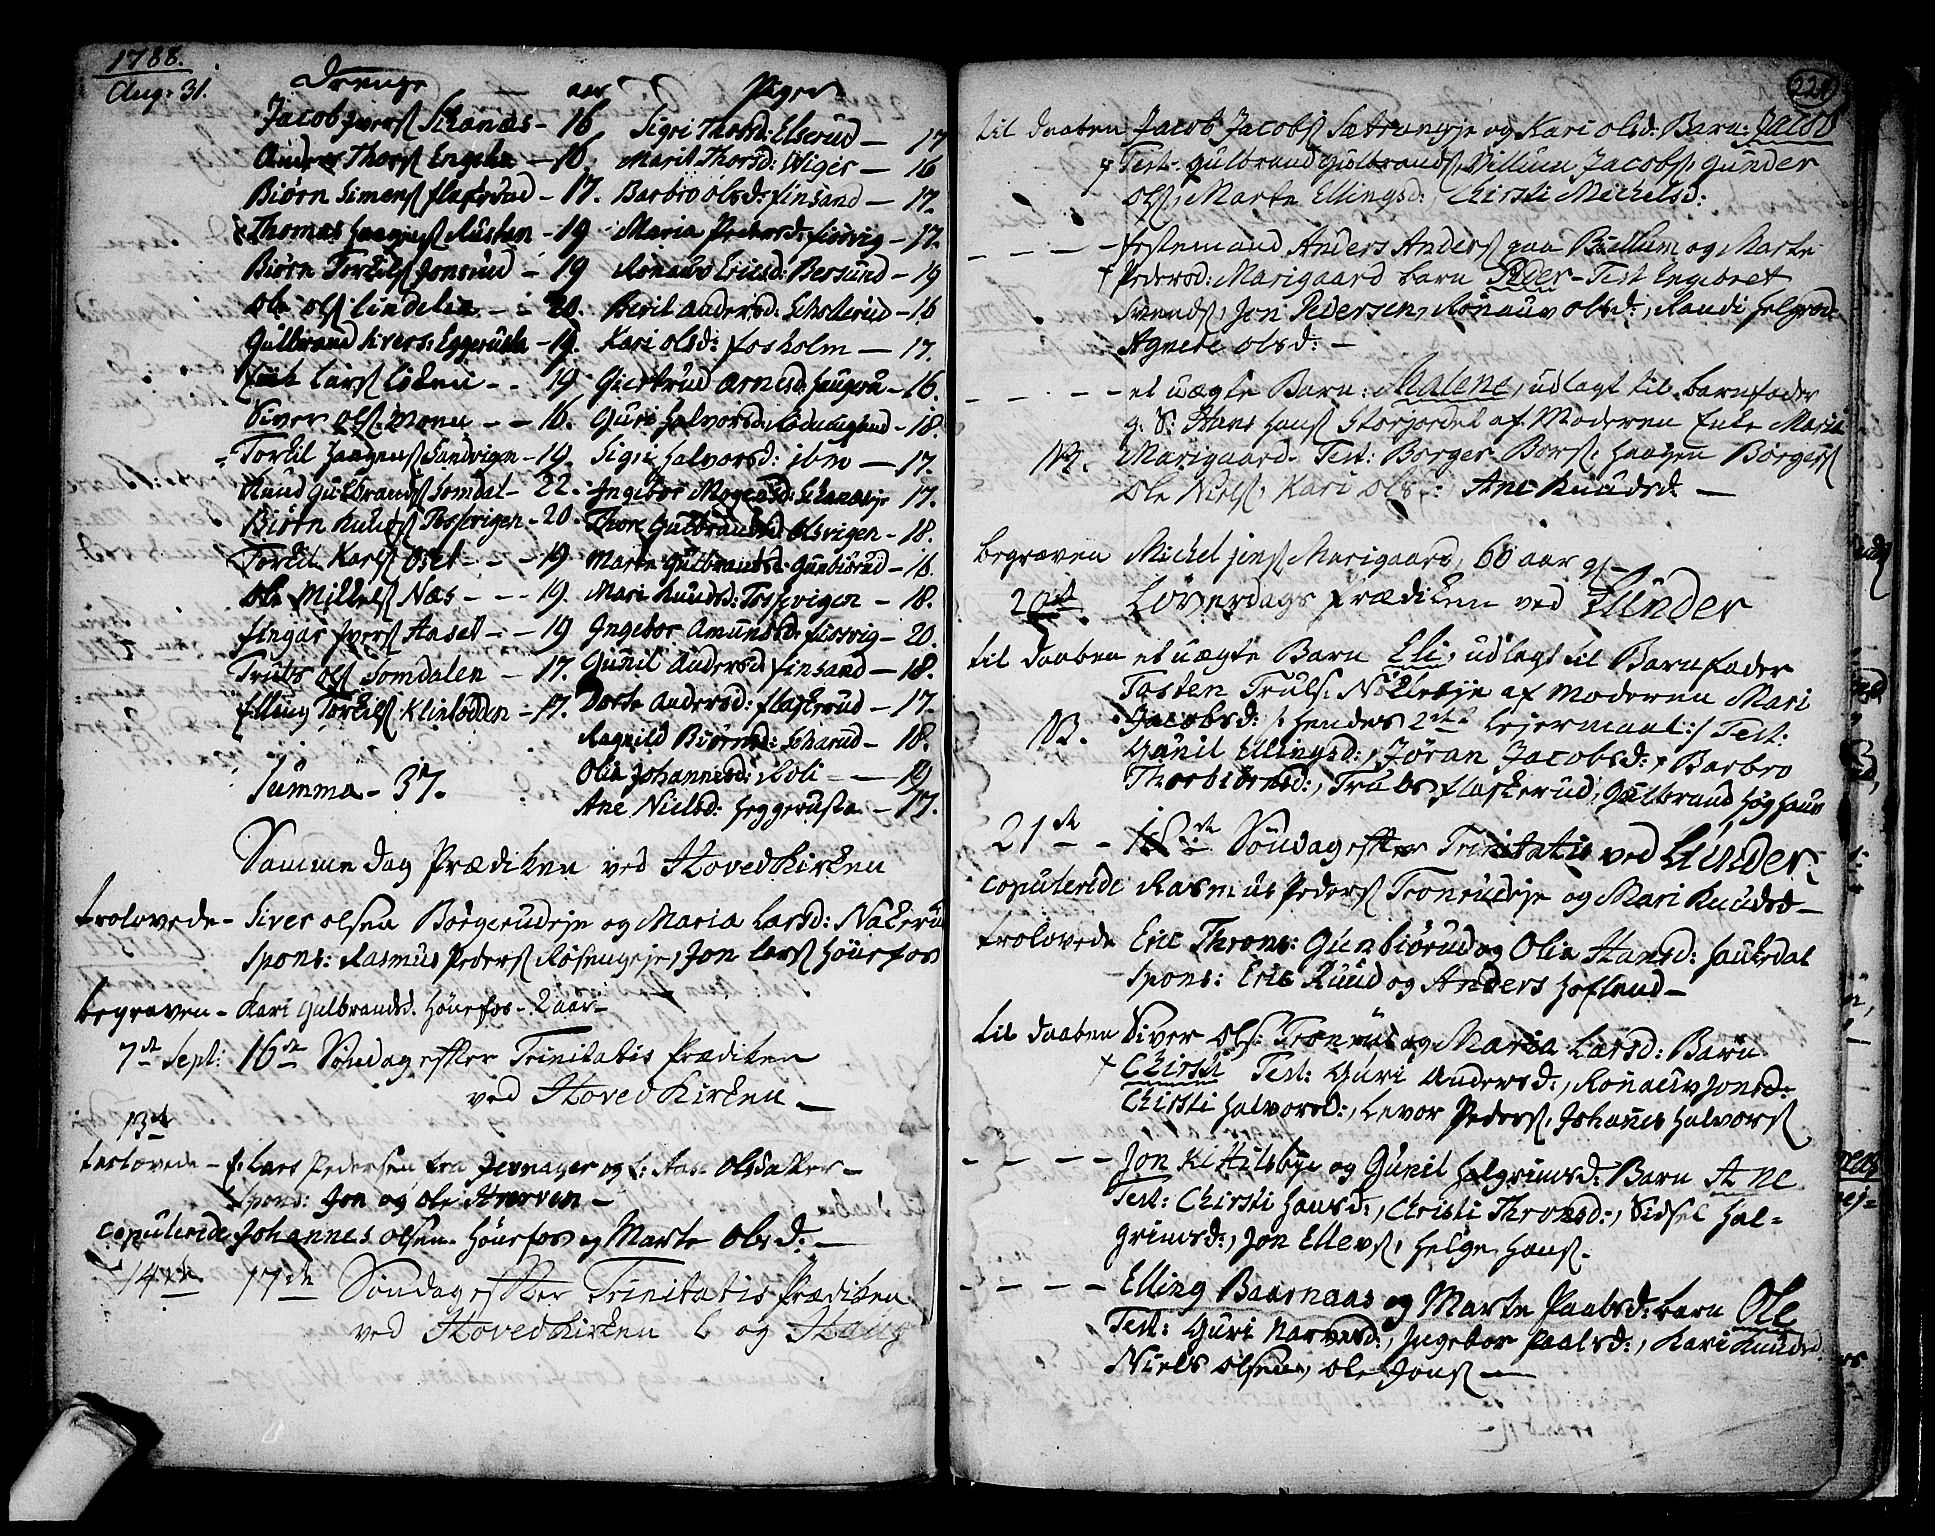 1788.
Aug: 31.
Drenge aar Piger
Jacob Ivers: Skanæs - 16 Sigri Thorsd: Elserud - 17
Anders Thors: - 16. Marit Thorsd: Wiger - 16
Biørn Simens: - 17. Barbro Olsd: Finsand - 17.
Thomas Haagens: - 19 Maria Pedersd: - 17.
Biørn Torkils: Jonsrud - 19 Ronauv Ericsd: Bersund - 19
Ole Ols: Lindelia - 20. Berit Andersd: - 16
Gulbrand Ivers: - 19. Kari Olsd: Fosholm - 17.
Lars: Løken - 19. Giertrud Arnesd: - 16.
Siver Ols: Moen - 16. Guri Halvorsd: - 18.
Torkil Haagens: Sandvigen - 19. Sigri Halvorsd: ibm - 17.
Knud Gulbrands: Somdal - 22. Ingebor - 17.
Biørn Knuds: Tossevigen - 20. Thore Gulbrandsd: Olsvigen - 18.
Torkil Karls: Oset - 19 Marte Gulbrandsd: Gunbiørud - 16
Ole Mikkels: Næs - 19. Mari Knudsd: Tossevigen - 18.
Ingar Ivers: Aaset - 19 Ingebor Amundsd: - 20.
Truls Ols: Somdalen - 17. Gunil Andersd: Finsand - 18.
Elling Torkils: Klinkodden - 17. Dorte Andersd: Flaskerud - 17.
Ragnild Biørnsd: - 18.
Summa - 37. Olia Johannesd: - 19
Ane Nielsd: Heggerusta - 17.
Samme Dag Prædiken ved Hoved Kirken
trolovede - Siver Olsen Børgerudeje og Maria Larsd: Nakerud
Spons: Rasmus Peders: Røsengeje, Jon Lars: Hønefos
begraven - Kari Gulbrandsd. Hønefos - 2 aar -
7de Sept: 16de Søndag efter Trinitatis Prædiken
ved Hoved Kirken -
13de
trolovede - Lars Pedersen fra Jevnager og Aase Olsdatter -
Spons: Jon og Ole -
copulerede Johannes Olsen Hønefos og Marte Olsd: -
14de 17de Søndag efter Trinitatis Prædiken
ved Hoved Kirken og Haug
221
til daaben Jacob Jacobs: Sætrangeje og Kari Olsd: Barn: Jacob
Test: Gulbrand Gulbrands: Villum Jacobs: Gunder
Ols:, Marte Ellingsd:, Christi Michelsd:
- - - - Festemand Anders Anders: paa Bællum og Marte
Pedersd: Marigaard barn Peder - Test: Engebret
Svends:, Jon Pedersen, Ronauv Olsd:, Randi Helgesd:
Agnete Olsd: -
- - - - et uægte Barn: Malene, udlagt til barnfader
g: S: Hans Hans: Storjordet af Moderen Enke Maria
NB. Marigaard. Test: Borger Bors: Haagen Børgers:
Ole Niels:, Kari Ols:, Ane Knudsd: -
begraven Michel Jens: Marigaard, 60 aar g: -
20de Løverdags Prædiken ved Lunder
til daaben et uægte Barn Eli, udlagt til Barnfader
Tosten Truls: af Moderen Mari
NB. Jacobsd: /: hendes 2det Lejermaal :/ Test:
Gunil Ellingsd:, Jøran Jacobsd:, Barbro
Thorbiørnsd:, Truls Flaskerud, Gulbrand Høghaug
21de - 18de Søndag efter Trinitatis ved Lunder.
copulerede Rasmus Peders: Tronrudeje og Mari Knudsd -
trolovede Eric Throns: Gunbiørud og Olia Hansd: Haukedal
Spons: Eric Ruud og Anders Hofland -
til daaben Siver Ols: Tronrud og Maria Larsd: Barn
Christi Test: Guri Andersd:, Ronauv Jonsd:
Christi Halvorsd:, Levor Peders:, Johannes Halvors:
- - - - Jon Hulsbye og Gunil Helgrimsd: Barn Ane
Test: Christi Hansd:, Christi Thronsd:, Sidsel Hal=
grimsd:, Jon Ellevs:, Helge Hans: -
- - - - Elling Baarnaas og Marte Paalsd: barn Ole
Test: Guri Narvesd:, Ingebor Paalsd:, Kari Knudsd
Niels Olsen, Ole Jons: -